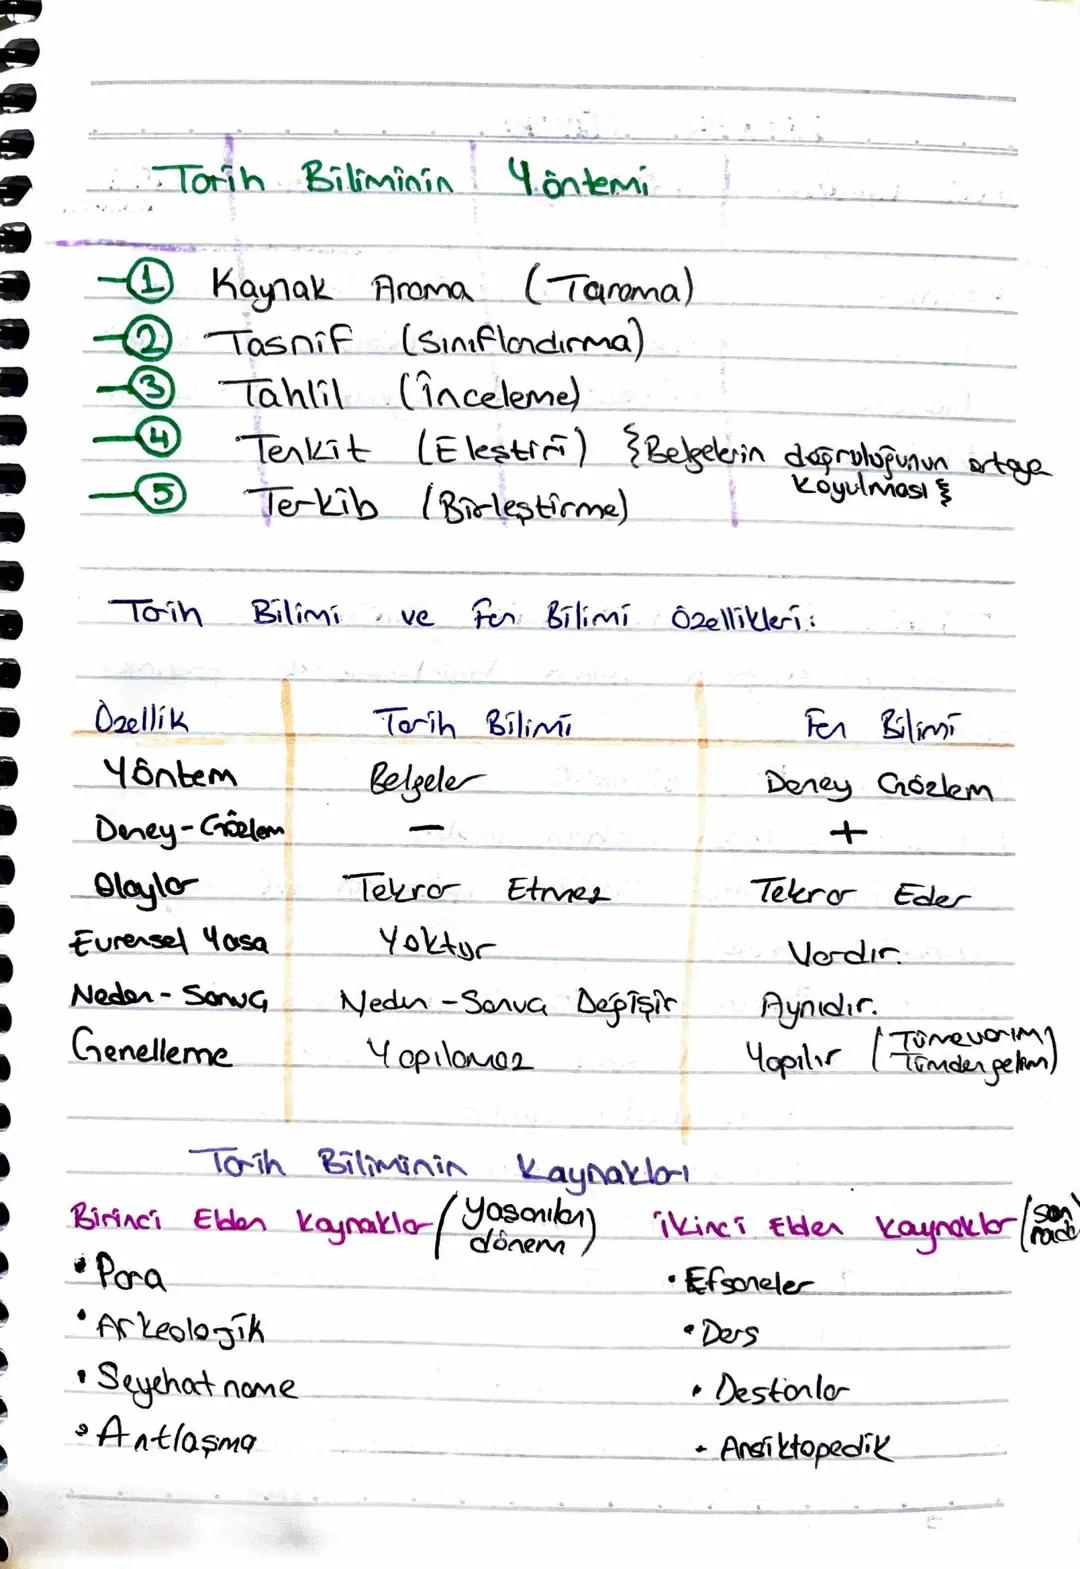 Tarih Biliminin Yöntemi
1 Kaynak Arama (Tarama)
2 Tasnif (Sınıflandırma)
3 Tahlil (İnceleme)
4 Tenkit (Eleştiri) {Belgelerin doğruluğunun ortaya
koyulması}
5 Terkib (Birleştirme)
Tarih Bilimi ve Fen Bilimi Özellikleri:
Özellik Tarih Bilimi Fen Bilimi
Yöntem Belgeler Deney Gözlem
Deney-Gözlem - +
Olaylar Tekrar Etmez Tekrar Eder
Evrensel Yasa Yoktur Vardır.
Neden-Sonuç Neden-Sonuç Değişir Aynıdır.
Genelleme Yapılamaz Yapılır (Tümevarım, Tümdengelim)
Tarih Biliminin Kaynakları
Birinci Elden Kaynaklar (yaşanılan dönem) İkinci Elden Kaynaklar (son
• Para • Efsaneler
• Arkeolojik • Ders
• Seyehatname • Destanlar
• Antlaşma • Ansiktopedik